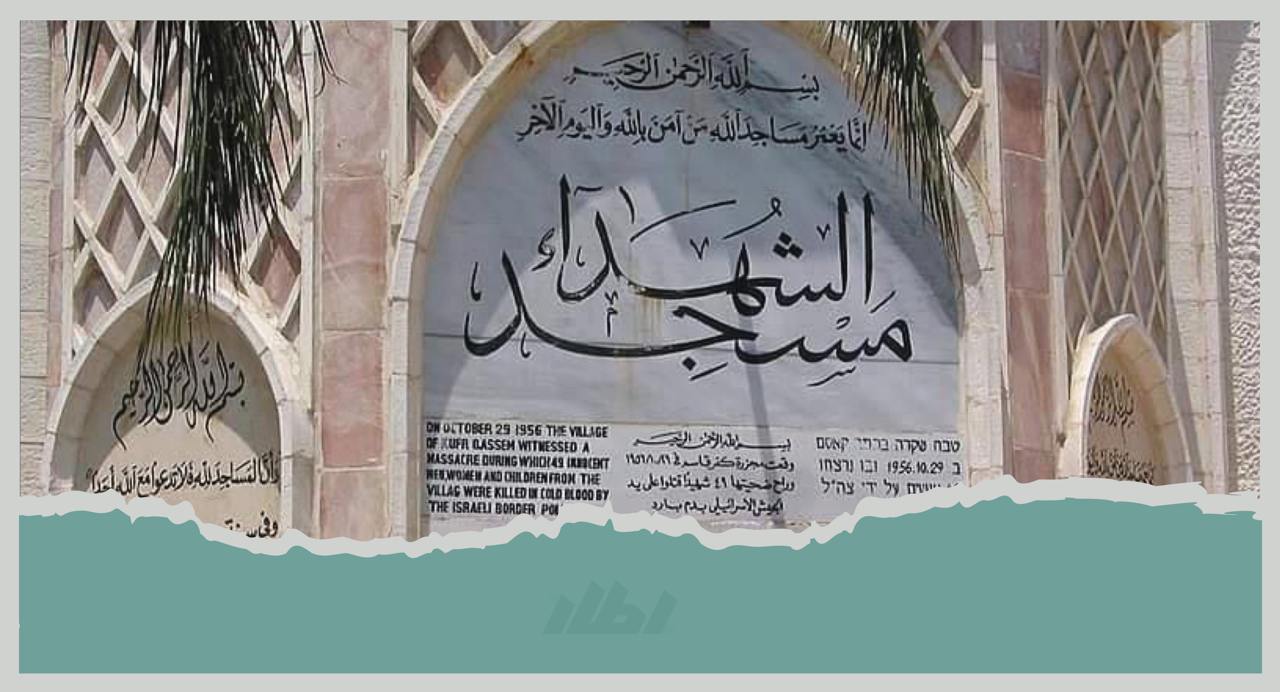 بسم الله الرحمن الرحيم
إنما يعمر مساجد الله من آمن بالله واليوم الآخر
مسجد الشهداء
ON OCTOBER 29 1956 THE VILLAGE
OF KUFR QASSEM WITNESSED A
MASSACRE DURING WHICH 49 INNOCENT
MEN, WOMEN AND CHILDREN FROM THE
VILLAG WERE KILLED IN COLD BLOOD BY
THE ISRAELI BORDER
بسم الله الرحمن الرحيم
وقعت مجزرة كفر قاسم في
وراح ضحيتها ٤٩ شهيدا قتلوا على يد
الجيش الاسرائيلي بدم بارد
טבח שקרה בכפר קאסם
ב 1956.10.29 ובו נרצחו
על ידי צה"ל
بسم الله الرحمن الرحيم
وأن المساجد لله فلا تدعوا مع الله أحدا
وفي سنة
اطار